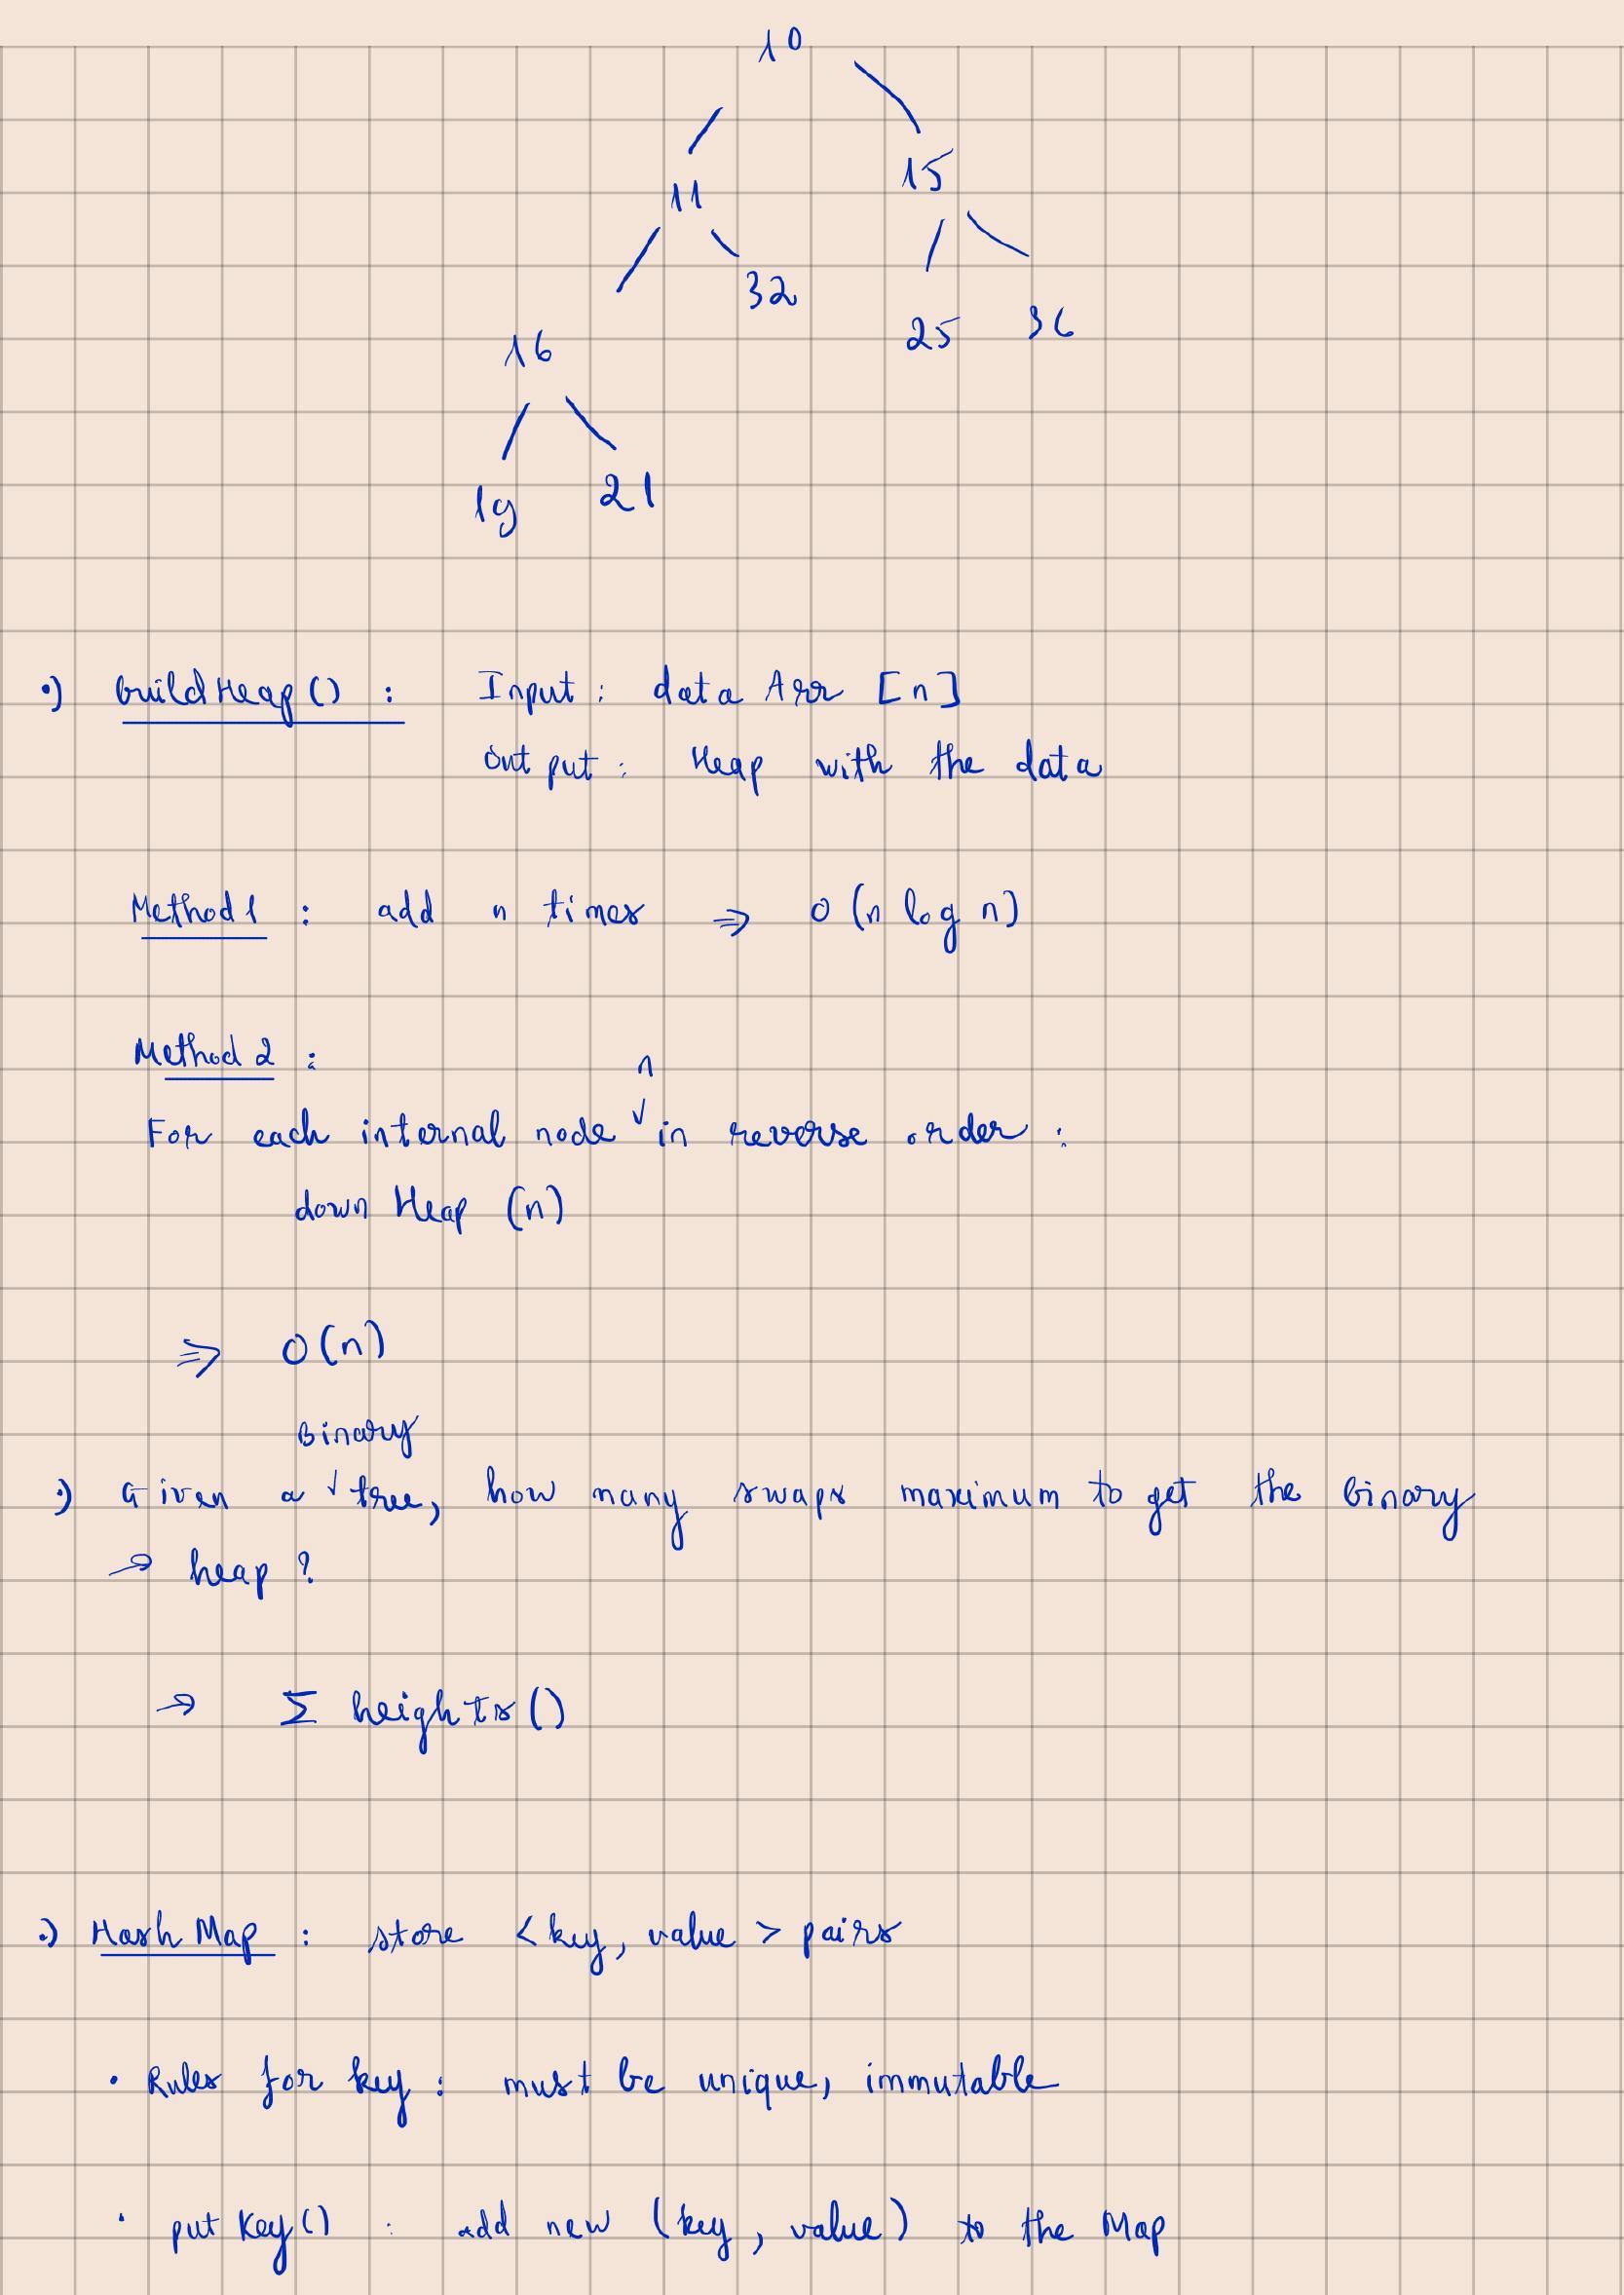 10
11 15
16 32 25 36
19 21
•) buildHeap() : Input : data Arr [n]
Output : Heap with the data
Method 1 : add n times ⇒ O(n log n)
Method 2 :
n
For each internal node √ in reverse order :
down Heap (n)
⇒ O(n)
Binary
•) Given a √ tree, how many swaps maximum to get the binary
→ heap ?
→ Σ heights()
•) Hash Map : store <key, value> pairs
• Rules for key : must be unique, immutable
• put Key() : add new (key, value) to the Map